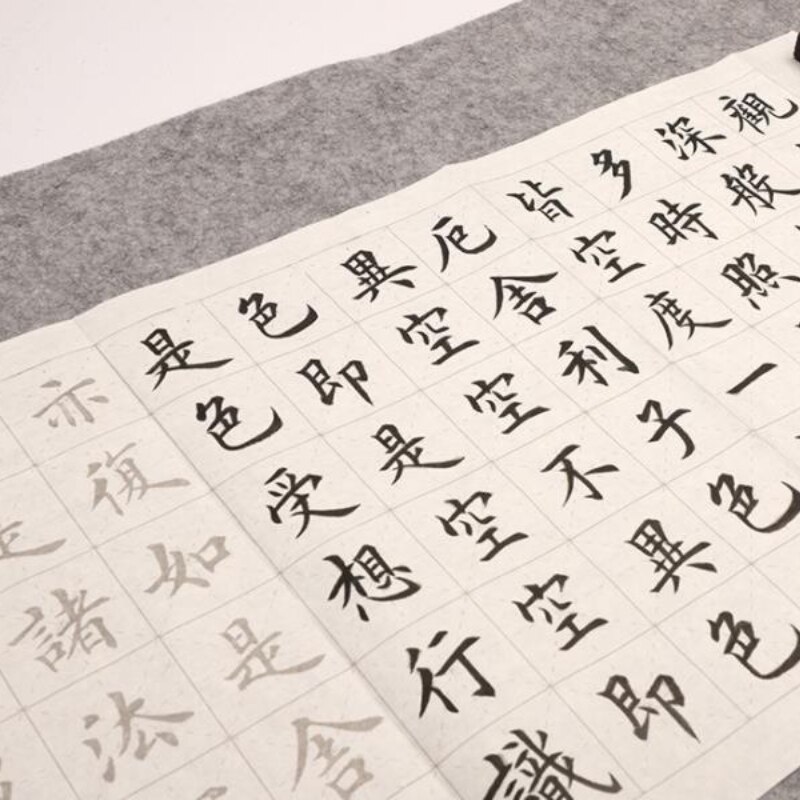 觀
深般
多時照
皆空度一
厄舍利子色
異空空不異色
色即是空空即
是色受想行識
亦復如是舍
是諸法